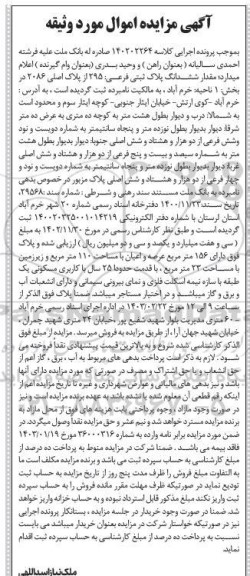 آگهی مزایده اموال مورد وثیقه
بموجب پرونده اجرایی کلاسه ۱۴۰۲۰۲۲۶۴ صادره له بانک ملت علیه فرشته
احمدی سالیانه (بعنوان راهن) و وحید بیدری (بعنوان وام گیرنده) اعلام
میدارد؛ مقدار ششدانگ پلاک ثبتی فرعی: ۲۹۵ از پلاک اصلی ۲۰۸۶ در
بخش: ۱ ناحیه: خرم آباد، به مالکیت نامبرده ثبت گردیده است، به آدرس:
خرم آباد -کوی ارتش- خیابان ایثار جنوبی- کوچه ایثار سوم و محدود است
به شمالا: درب و دیوار بطول هشت متر به کوچه ده متری به عرض ده متر
شرقا: دیوار بدیوار بطول نوزده متر و پنجاه سانتیمتر به شماره دویست و نود
وشش فرعی از دو هزار و هشتاد و شش اصلی جنوبا: دیوار بدیوار بطول هشت
متر به شماره سیصد و بیست و پنج فرعی از دو هزار و هشتاد و شش اصلی
غربا: دیوار بدیوار بطول نوزده متر و پنجاه سانتیمتر به شماره دویست و نود و
چهار فرعی از دو هزار و هشتاد و شش اصلی پلاک مزبور در خصوص بدهی
نامبرده به بانک ملت مستند سند رهنی و شرطی: شماره سند: ۳۹۵۶۸،
تاریخ سند: ۱۴۰۰/۱۱/۲۳ دفترخانه اسناد رسمی شماره ۲۰ شهر خرم آباد
استان لرستان با شماره دفتر الکترونیکی ۱۴۰۰۲۰۳۲۵۰۰۱۰۱۴۲۱۹ ثبت
گردیده است و طبق نظر کارشناس رسمی در مورخ ۱۴۰۲/۱۱/۳۰ به مبلغ
(سی و هفت میلیارد و یکصد و سی و دو میلیون ریال) ارزیابی شده و پلاک
فوق دارای ۱۵۶ متر مربع عرصه و اعیان با مساحت ۱۱۰ متر مربع و زیرزمین
با مساحت ۲۲ متر مربع، با قدمت حدودا ۲۵ سال با کاربری مسکونی یک
طبقه با سازه نیمه اسکلت فلزی و نمای بیرونی سیمانی و دارای انشعابات آب
و برق و گاز میباشد و در اختیار مستاجر میباشد ضمنا پلاک فوق الذکر از
ساعت ۹ الی ۱۲ مورخ ۱۴۰۳/۰۲/۲۲ در اداره اجرای اسناد رسمی خرم آباد
۶۰ متری مدیریت بلوار شهید شفیع پور خیابان ۲۴ متری شهید چمران ،
خیابان شهید جهان آرا، از طریق مزایده به فروش میرسد. مزایده از مبلغ فوق
الذکر کارشناسی شده شروع و به بالاترین قیمت پیشنهادی نقدا فروخته می
شود. لازم به ذکر است پرداخت بدهی های مربوط به آب، برق، گاز اعم از
حق انشعاب و یا حق اشتراک و مصرف در صورتی که مورد مزایده دارای آنها
باشد و نیز بدهی های مالیاتی و عوارض شهرداری و غیره تا تاریخ مزایده اعم از
اینکه رقم قطعی آن معلوم شده یا نشده باشد به عهده برنده مزایده است و نیز
در صورت وجود مازاد، وجوه پرداختی بابت هزینه های فوق از محل مازاد به
برنده مزایده مسترد خواهد شد و نیم عشر و حق مزایده نقدا وصول میگردد. در
ضمن مورد مزایده برابر نامه وارده به شماره ۳۶۰۰۰۳۱۶ مورخ ۱۴۰۳/۰۱/۱۹
فاقد بیمه می باشد. ضمنا شرکت در مزایده منوط به پرداخت ده درصد از
مبلغ کارشناسی به حساب سپرده ثبت می باشد و برنده مزایده مکلف است ما
به التفاوت مبلغ فروش را ظرف مدت پنج روز از تاریخ مزایده به حساب ثبت
تودیع نماید در صورتیکه ظرف مهلت مقرر مانده فروش را به حساب سپرده
ثبت واریز نکند مبلغ مذکور قابل استرداد نبوده و به حساب خزانه واریز خواهد
شد. ضمنا در صورت وجود خریدار در جلسه مزایده ، بستانکار پرونده اجرایی
نیز در صورتیکه خواستار شرکت در مزایده بعنوان خریدار میباشد می بایست
نسبت به پرداخت ده درصد از مبلغ کارشناسی به حساب سپرده ثبت اقدام
نماید.
ملک نیاز اسداللهی